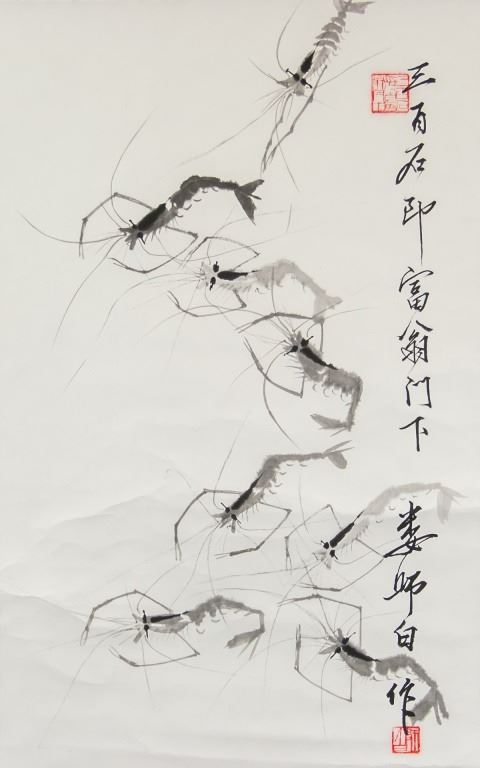 三百石印富翁门下 娄师白作